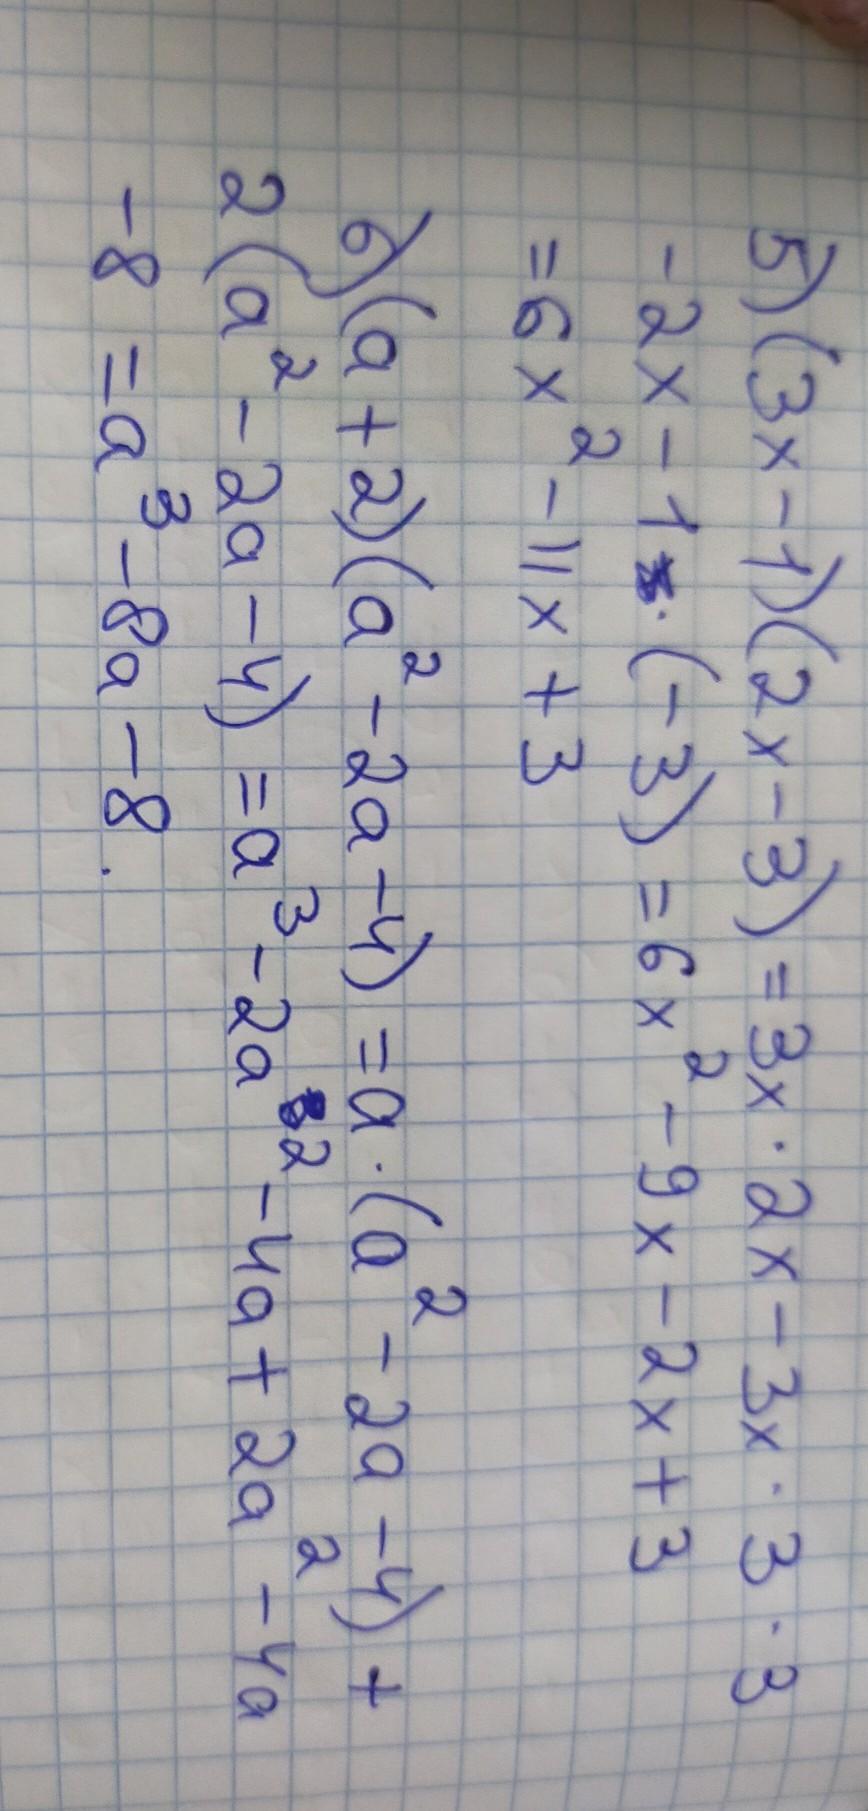 5) (3x - 1)(2x - 3) = 3x · 2x - 3x · 3 · 3
- 2x - 1 · (-3) = 6x² - 9x - 2x + 3
= 6x² - 11x + 3
6) (a + 2)(a² - 2a - 4) = a · (a² - 2a - 4) +
2(a² - 2a - 4) = a³ - 2a² - 4a + 2a² - 4a
- 8 = a³ - 8a - 8.